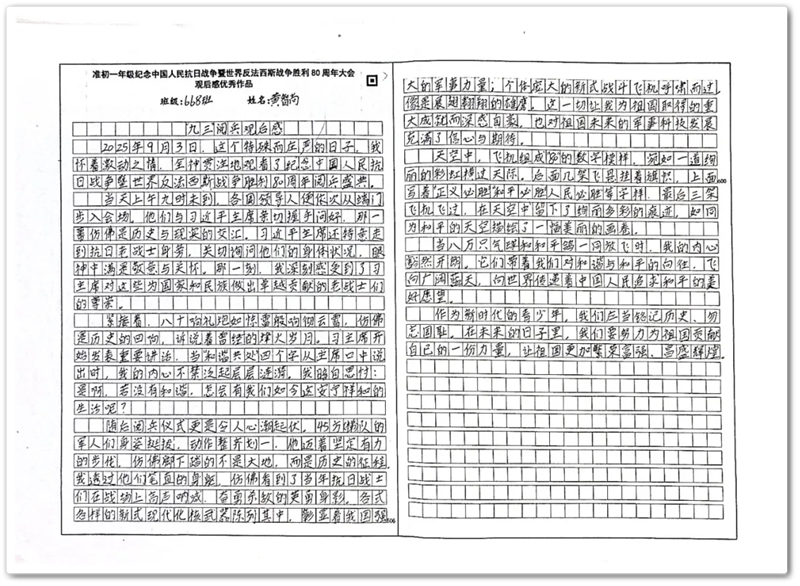 准初一年级纪念中国人民抗日战争暨世界反法西斯战争胜利80周年大会
观后感优秀作品
班级:668班 姓名:黄
九三阅兵观后感
2025年9月3日，这个特殊而庄严的日子，我
怀着激动之情，全神贯注地观看了纪念中国人民抗
日战争暨世界反法西斯战争胜利80周年阅兵盛典。
当天上午九时未到，各国领导人便依次从端门
步入会场，他们与习近平主席亲切握手问好，那一
幕仿佛是历史与现实的交汇。习近平主席还特意走
到抗日老战士身旁，关切询问他们的身体状况，眼
神中满是敬意与关怀。那一刻，我深刻感受到了习
主席对这些为国家和民族做出卓越贡献的老战士们
的尊崇。
紧接着，八十响礼炮如惊雷般响彻云霄，仿佛
是历史的回响，诉说着曾经的烽火岁月。习主席开
始发表重要讲话，当和谐共处四个字从主席口中说
出时，我的内心不禁泛起层层涟漪，我暗自思忖：
是啊，若没有和谐，怎会有我们如今这安宁祥和的
生活呢？
随后阅兵仪式更是令人心潮起伏，45方梯队的
军人们身姿挺拔，动作整齐划一，他迈着坚定有力
的步伐，仿佛脚下踏的不是大地，而是历史的征程。
我透过他们笔直的身躯，仿佛看到了当年抗日战士
们在战场上高声呐喊、奋勇杀敌的英勇身影。各式
各样的新式现代化核武器陈列其中，彰显着我国强
大的军事力量；个体宏大的新式战斗飞机呼啸而过，
像是展翅翱翔的雄鹰。这一切让我为祖国取得的重
大成就而深感自豪，也对祖国未来的军事科技发展
充满了信心与期待。
天空中，飞机组成80的数字模样，宛如一道绚
丽的彩虹横过天际。后面几架飞机悬挂着旗帜，上面
写着正义必胜和平必胜人民必胜等字样，最后三架
飞机飞过，在天空中留下了绚丽多彩的痕迹，如同
为和平的天空描绘了一幅美丽的画卷。
当八万只气球和和平鸽一同放飞时，我的内心
豁然开朗。它们带着我们对和谐与和平的向往，飞
向广阔蓝天，向世界传递着中国人民追求和平的美
好愿望。
作为新时代的青少年，我们应当铭记历史、勿
忘国耻。在未来的日子里，我们要努力为祖国贡献
自己的一份力量，让祖国更加繁荣富强、昌盛辉煌。